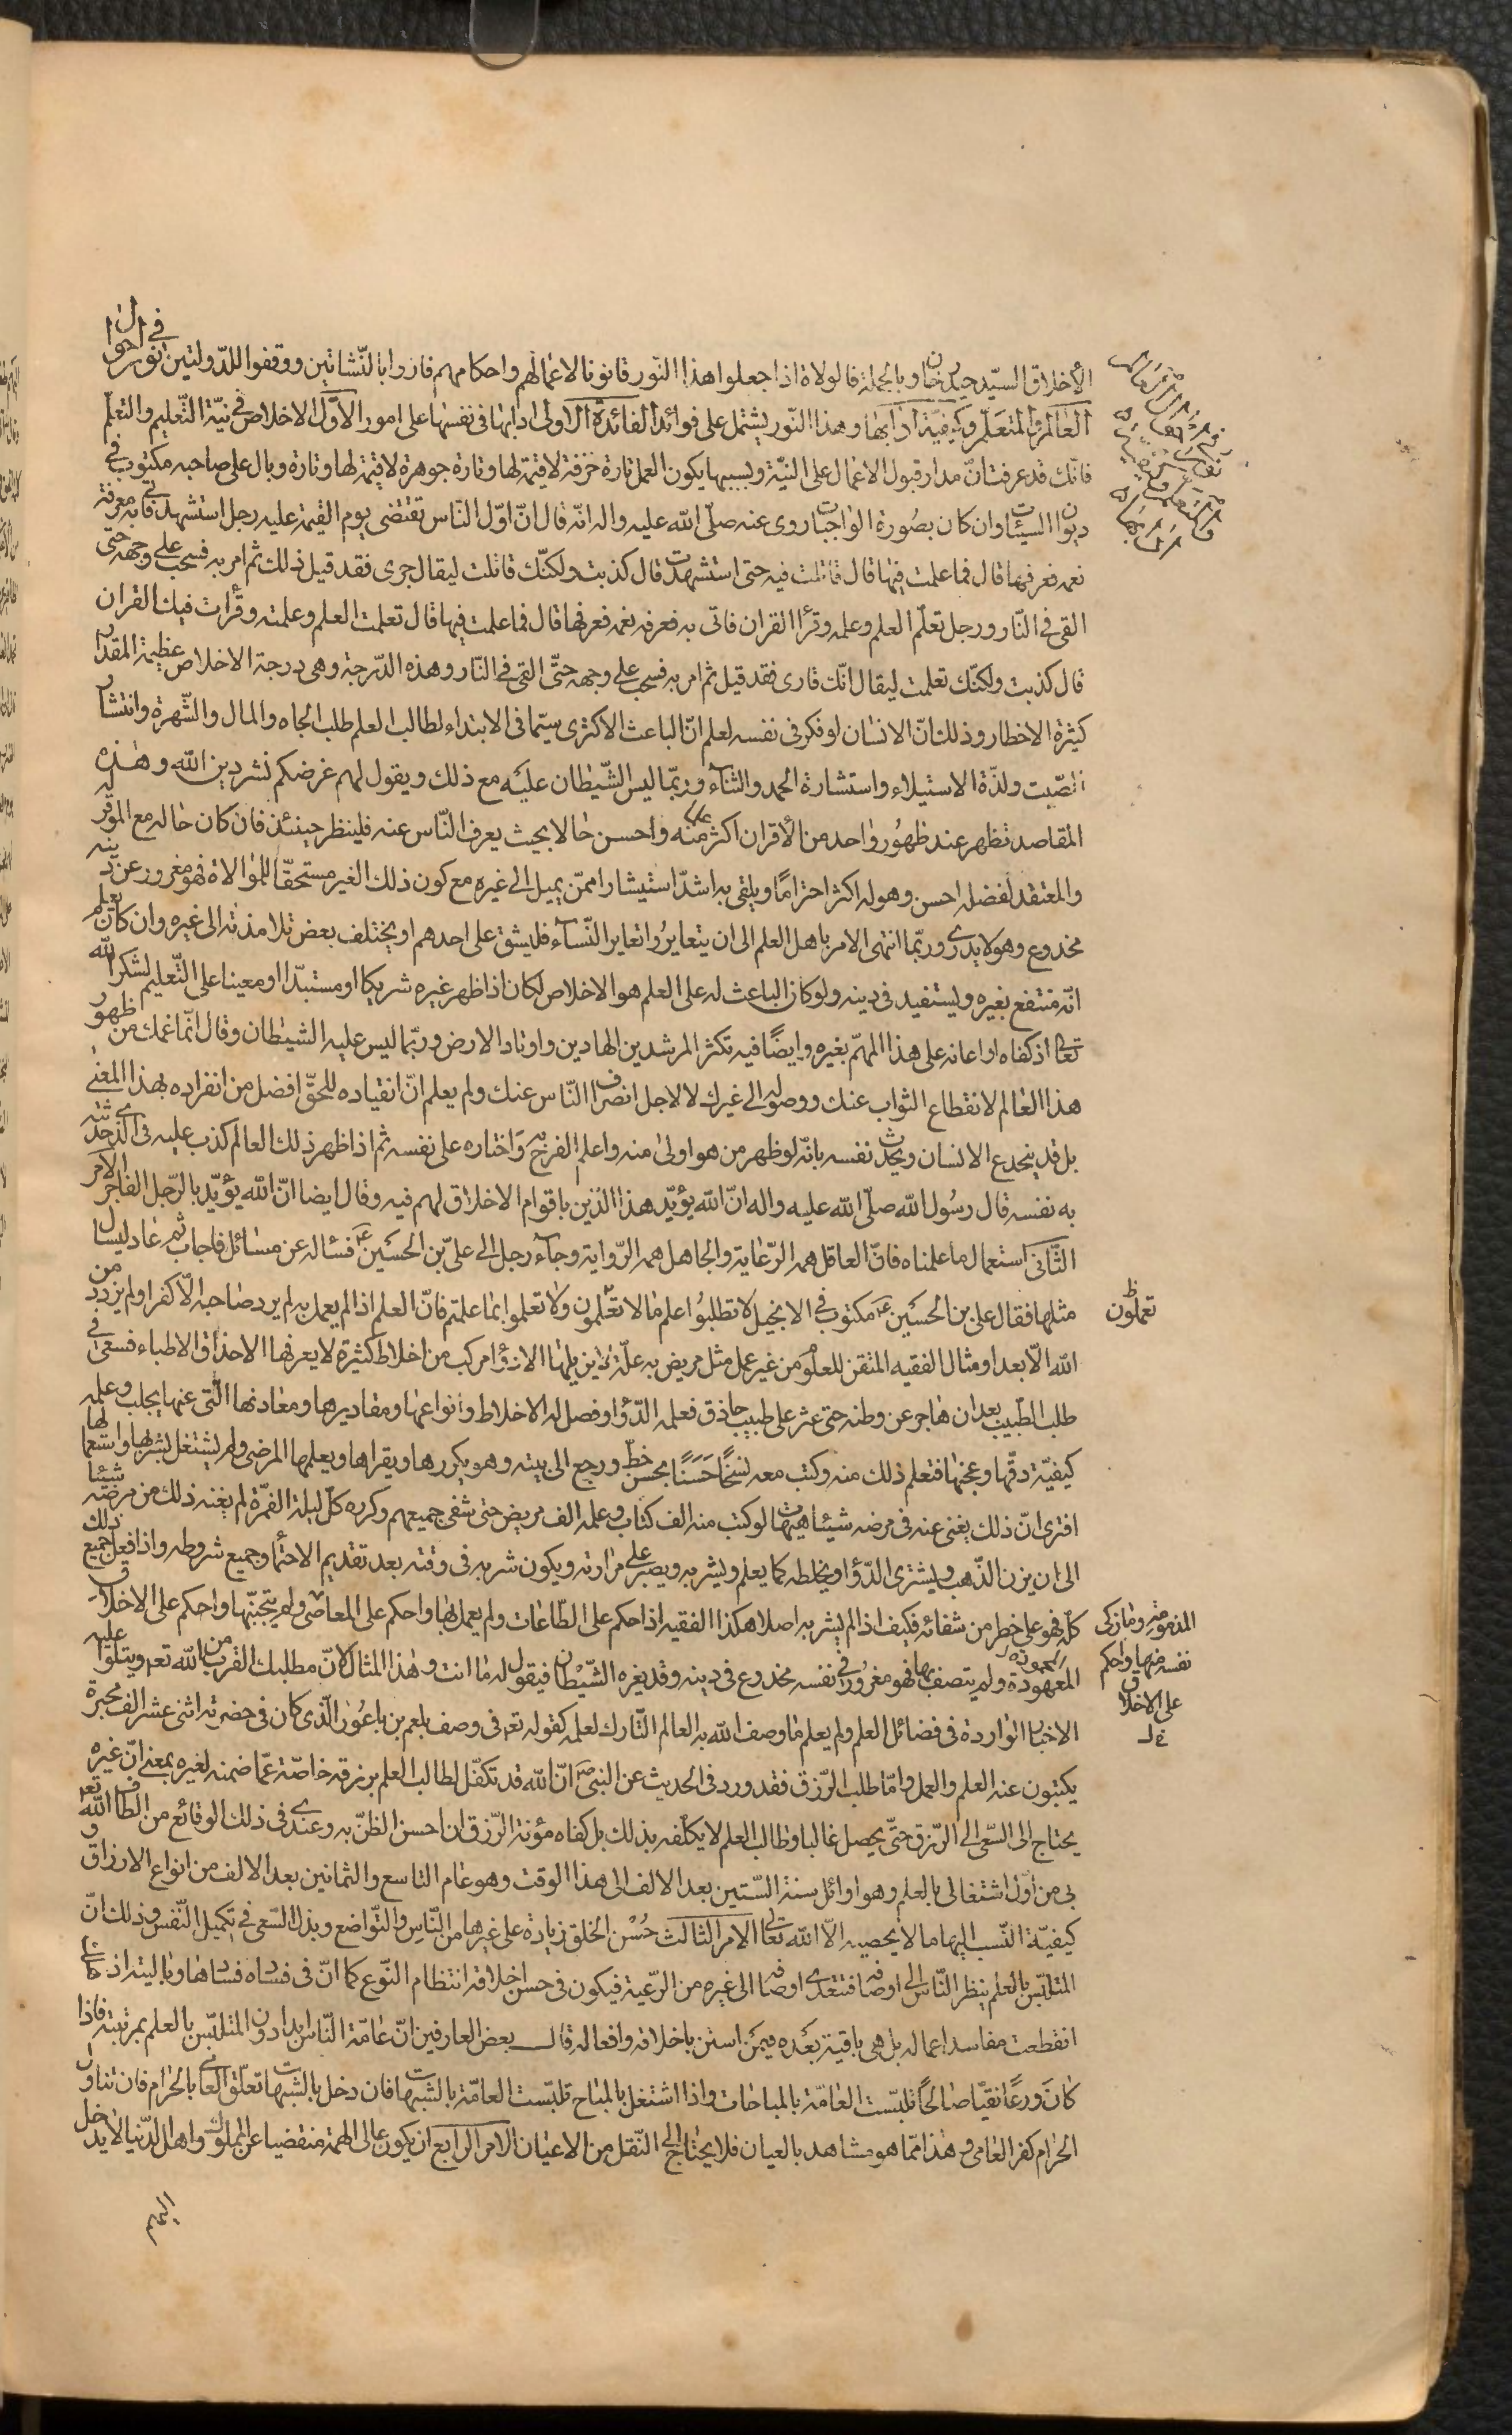 الأخلاق السيّد حيدر خان وبالجملة فالولاة اذا جعلوا هذا النّور قانونا لاعمالهم واحكامهم فازوا بالنّشاتين ووقفوا للدّولتين نور في احوال
العالم والمتعلّم وكيفيّة ادابهما وهذا النّور يشتمل على فوائد الفائدة الاولى ادابهما في نفسهما على امور الاوّل الاخلاص في نيّة التّعليم والتعلّم
فانّك قد عرفت انّ مدار قبول الاعمال على النيّة وبسببها يكون العمل تارة خزفة لا قيمة لها وتارة جوهرة لا قيمة لها وتارة وبال على صاحبه مكتوب في
ديوان السيئات وان كان بصورة الواجبات روى عنه صلّى الله عليه واله انّه قال انّ اوّل النّاس تقتضى يوم القيمة عليه رجل استشهد فاتى به فعرفه
نعمه فعرفها قال فما علمت فيها قال قاتلت فيه حتى استشهدت قال كذبت ولكنّك قاتلت ليقال جرى فقد قيل ذلك ثم امر به فسحب على وجهه حتى
القى في النّار ورجل تعلّم العلم وعلمه وقرأ القران فاتى به فعرفه نعمه فعرفها قال فما علمت فيها قال تعلمت العلم وعلمته وقرأت فيك القران
قال كذبت ولكنّك تعلمت ليقال انّك قارى فقد قيل ثم امر به فسحب على وجهه حتّى القى في النّار وهذه الدّرجة وهى درجة الاخلاص عظيمة المقدار
كثيرة الاخطار وذلك انّ الانسان لو فكر في نفسه لعلم انّ الباعث الاكثرى سيّما في الابتداء لطالب العلم طلب الجاه والمال والشّهرة وانتشار
الصّيت ولذّة الاستيلاء واستشارة الحمد والثناء وربّما ليس الشّيطان عليه مع ذلك ويقول لهم غرضكم نشر دين الله وهذه
المقاصد تظهر عند ظهور واحد من الأقران اكثر علما منه واحسن حالا بحيث يعرف النّاس عنه فلينظر حينئذ فان كان حاله مع الموقر له
والمعتقد لفضله احسن وهو له اكثر احتراما ويلتقى به اشدّ استيشارا ممّن يميل الى غيره مع كون ذلك الغير مستحقّا للموالاة فهو مغرور عن دينه
مخدوع وهو لا يدرى وربّما انتهى الامر باهل العلم الى ان يتعايروا تعاير النّساء فليشق على احدهم او يختلف بعض تلامذته الى غيره وان كان يعلم
انّه منتفع بغيره ويستفيد في دينه ولو كان الباعث له على العلم هو الاخلاص لكان اذا ظهر غيره شريكا او مستبدّا او معينا على التّعليم لشكر الله
تعالى اذ كفاه او اعانه على هذا المهمّ بغيره وايضًا فيه تكثر المرشدين الهادين واوتاد الارض وربّما ليس عليه الشيطان وقال انّما غمك من ظهور
هذا العالم لانقطاع الثواب عنك ووصوله الى غيرك لا لاجل انصراف النّاس عنك ولم يعلم انّ انقياده للحقّ افضل من انفراده بهذا المعنى
بل قد ينخدع الانسان ويحدّث نفسه بانّه لو ظهر من هو اولى منه واعلم لفرح به واختاره على نفسه ثم اذا ظهر ذلك العالم كذب عليه في الّذى حدّثته
به نفسه قال رسول الله صلّى الله عليه واله انّ الله يؤيّد هذا الدّين باقوام لا خلاق لهم فيه وقال ايضا انّ الله يؤيّد بالرّجل الفاجر الامر
الثّانى استعمال ما علمناه فانّ العاقل همه الرّعاية والجاهل همه الرّواية وجاء رجل الى علىّ بن الحسين ع فسأله عن مسائل فاجاب ثم عاد ليسأل
مثلها فقال على بن الحسين ع مكتوب في الانجيل لا تطلبوا علم ما لا تعلمون ولا تعلموا بما علمتم فانّ العلم اذا لم يعمل به لم يرد صاحبه الّا كفرا ولم يزدد من
تعملون ظ
الله الّا بعدا ومثال الفقيه المتقن للعلوم من غير عمل مثل مريض به علّة لا يزيلها الا دؤا مركب من اخلاط كثيرة لا يعرفها الا حذاق الاطباء فسعى في
طلب الطّبيب بعد ان هاجر عن وطنه حتى عثر على طبيب حاذق فعلمه الدّؤا وفصل له الاخلاط وانواعها ومقاديرها ومعادنها الّتى عنها يجلب وعلمه
كيفيّة دقّها وعجنها فتعلم ذلك منه وكتب معه نسخًا حسنًا بحسن خطّ ورجع الى بيته وهو يكررها ويقراها ويعلمها المرضى ولم يشتغل بشربها واستعمالها
افترى انّ ذلك يغنى عنه في مرضه شيئا هيهات لو كتب منه الف كتاب وعلمه الف مريض حتى شفى جميعهم وكرره كلّ ليلة الف مرّة لم يغنه ذلك من مرضه شيئا
الى ان يزن الذّهب ويشترى الدّؤا ويخلطه كما يعلم ويشربه ويصبر على مرارته ويكون شربه في وقته بعد تقديم الاحتماء وجميع شروطه واذا فعل جميع ذلك
كلّه فهو على خطر من شفائه فكيف اذا لم يشربه اصلا هكذا الفقيه اذا حكم على الطّاعات ولم يعمل بها واحكم على المعاصى ولم يتجنّبها واحكم على الاخلاق
المذمومة وما زكى
نفسه منها واحكم
على الاخلاق
المعهودة ولم يتصف بها فهو مغرور في نفسه مخدوع في دينه وقد يغره الشّيطان فيقول له ما انت وهذا المثال لانّ مطلبك القرب من الله تعه ويتلوا عليه
الاخبار الواردة في فضائل العلم ولم يعلم ما وصف الله به العالم التّارك لعلمه كقوله تعه في وصف بلعم بن باعور الّذى كان في حضرته اثنى عشر الف محبرة
يكتبون عنه العلم والعمل وامّا طلب الرّزق فقد ورد في الحديث عن النبى ص انّ الله قد تكفّل لطالب العلم برزقه خاصّة عمّا ضمنه لغيره بمعنى انّ غيره
يحتاج الى السّعى الى الرّزق حتّى يحصل غالبا وطالب العلم لا يكلّفه بذلك بل كفاه مؤنة الرّزق ان احسن الظنّ به وعندى في ذلك الوقائع من الطاف الله تعه
بى من اوّل اشتغالى بالعلم وهو اوائل سنة السّتين بعد الالف الى هذا الوقت وهو عام التاسع والثمانين بعد الالف من انواع الارزاق و
كيفيّة النّسب اليها ما لا يحصيه الّا الله تعالى الامر الثالث حُسْن الخلق زيادة على غيرها من النّاس والتّواضع وبذل السّعى في تكميل النّفس وذلك انّ
المتلبّس بالعلم ينظر النّاس الى اوصافه فتتعدى اوصافه الى غيره من الرّعية فيكون في حسن اخلاقه انتظام النّوع كما انّ في فساده فسادها ويا ليته اذ مات
انقطعت مفاسد اعماله بل هى باقية بعده فيمن استن باخلاقه وافعاله قال بعض العارفين انّ عامّة النّاس ابدا دون المتلبّس بالعلم بمرتبة فاذا
كان ورعًا نقيّا صالحًا تلبّست العامّة بالمباحات واذا اشتغل بالمباح تلبّست العامّة بالشّبهات فان دخل بالشّبهات تعلّق العامى بالحرام فان تناول
الحرام كفر العامى وهذا ممّا هو مشاهد بالعيان فلا يحتاج الى النّقل من الاعيان الامر الرابع ان يكون عالى الهمّة منقضيا عن الملوك واهل الدّنيا لا يدخل
اليهم